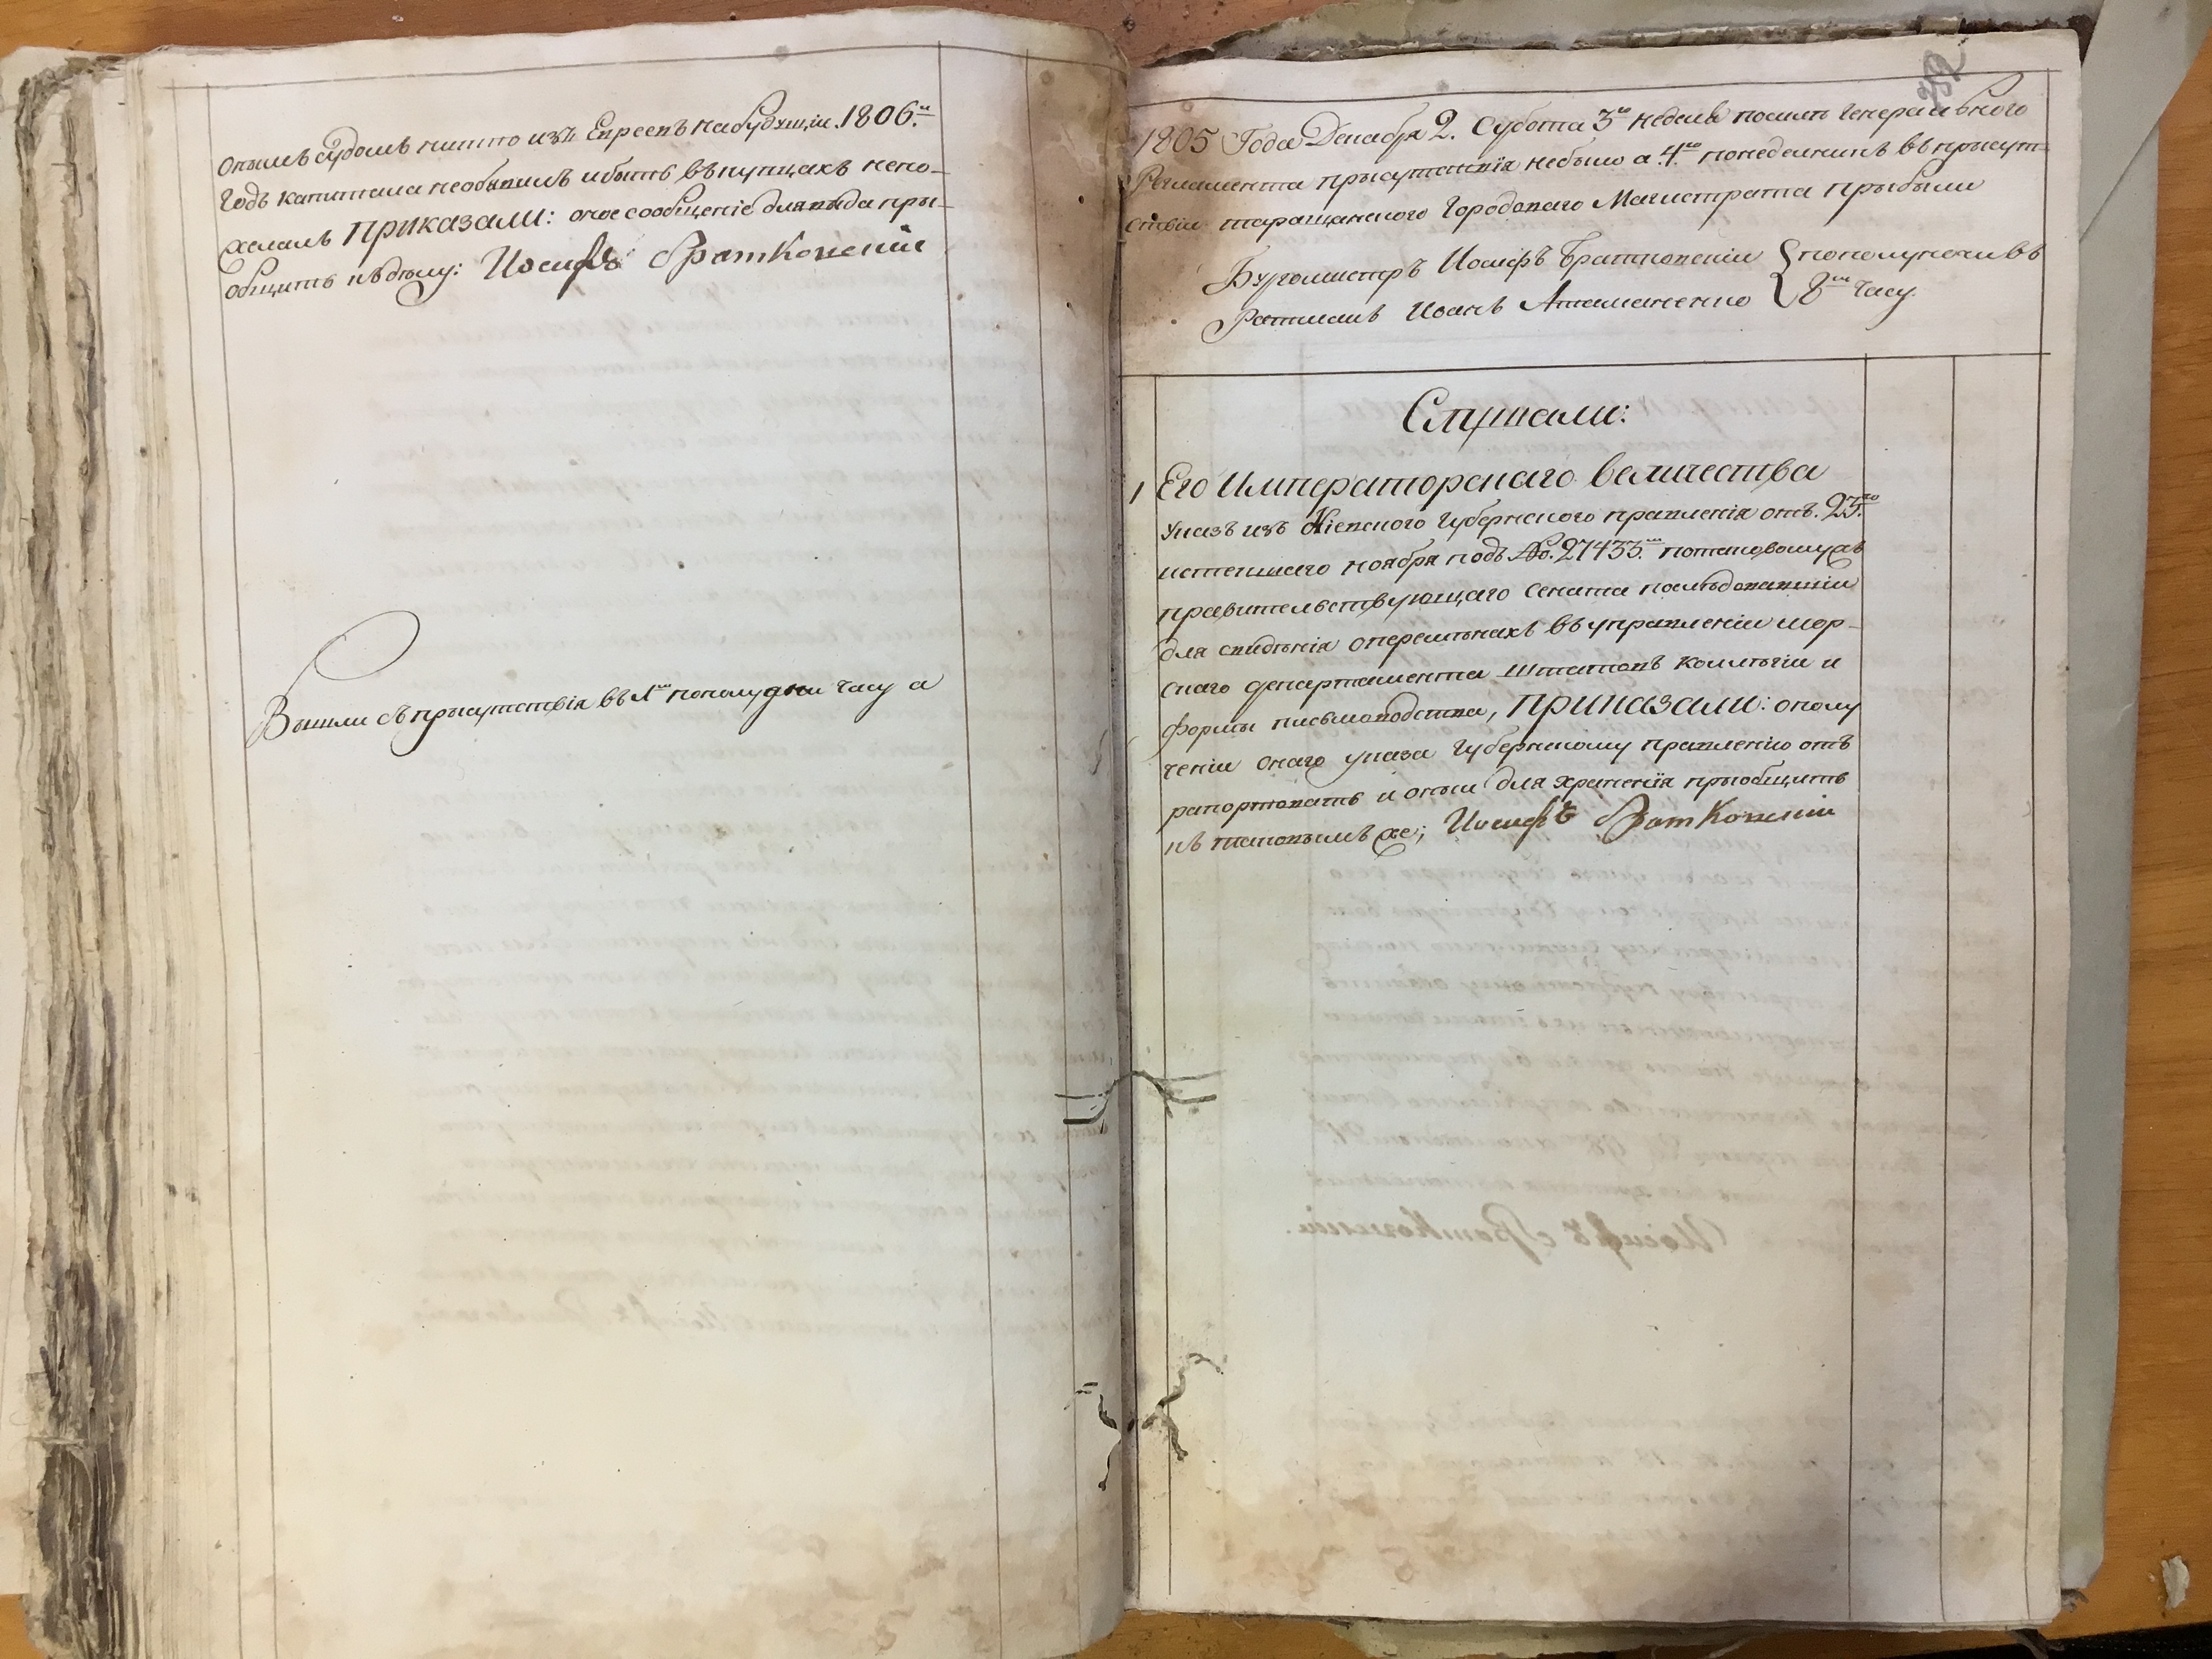 онымъ судомъ никто изъ Евреевъ набудущіи 1806.й
Годъ капитала необявилъ ибыть въкупцахъ непо-
желалъ приказали: оное сообщеніе длявида прі-
общить кѣделу: Иосифъ Братковскій
Вышли съприсутствія въ 1м пополудни часу а
1805 Года Декабря 2. Субота 3го недѣля посилѣ Генерального
Регламента присутствія небыло а 4го понеделникъ въприсут-
ствіи таращанского Городоваго Магистрата прибыли
Бургомистръ Иосифъ Братковскіи пополуночи въ
Ратманъ Иоанъ Атаманенко 8м часу.
Слушали:
1 Его Императорскаго величества
указъ изъ Кіевского Губернского правленія отъ 25го
истекшаго ноября подъ No. 27433м потаковомужъ
правительствующаго Сената последовавшіи
для сведенія оперемѣнахъ въуправленіи мор-
скаго департамента штатовъ коллегіи и
формы писмоводства, приказали: ополу
ченіи онаго указа Губернскому правленію отъ
рапортовать и оныи для храненія пріобщить
къ таковымъ же; Иосифъ Братковскій